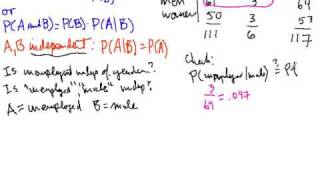 or
P(A and B) = P(B) · P(A|B)
A, B independent: P(A|B) = P(A)
Is unemployed indep of gender?
Is "unemployed", "male" indep?
A = unemployed B = male
men 61 3 64
women 50 3 53
111 6 117
Check:
P(unemployed | male) ?= P(
3/64 = .047